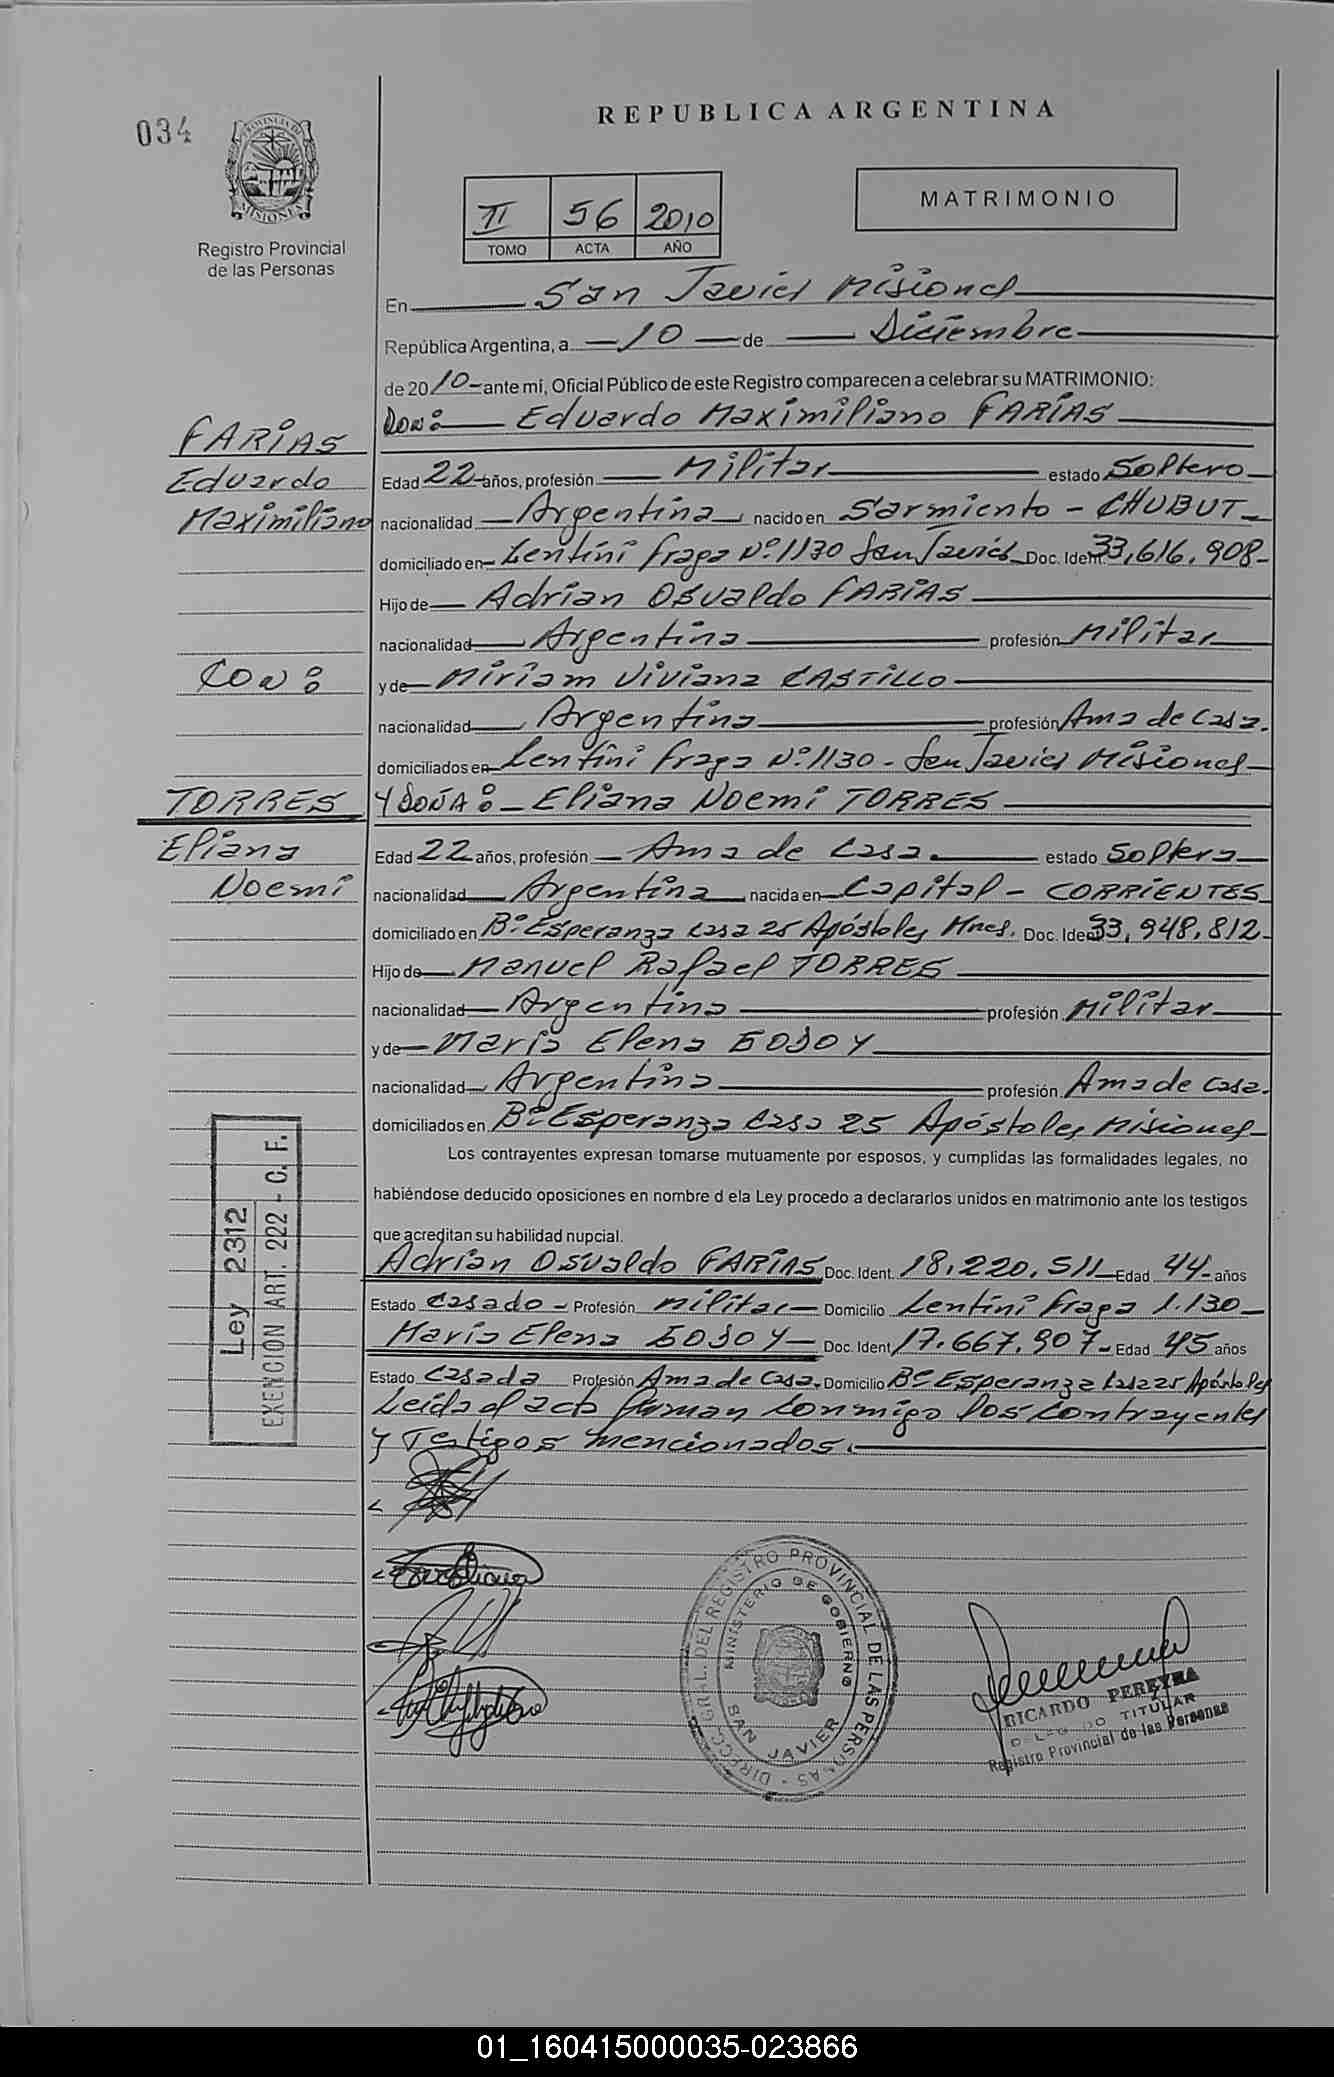 034
PROVINCIA DE
MISIONES
Registro Provincial
de las Personas
REPUBLICA ARGENTINA
II 56 2010
TOMO ACTA AÑO
MATRIMONIO
En San Javier Misiones
República Argentina, a 10 de Diciembre
de 2010 ante mi, Oficial Público de este Registro comparecen a celebrar su MATRIMONIO:
DON: Eduardo Maximiliano FARIAS
FARIAS
Eduardo
Maximiliano
Edad 22 años, profesión Militar estado Soltero
nacionalidad Argentina nacido en Sarmiento - CHUBUT
domiciliado en Lentini Fraga Nº 1130 San Javier Doc. Ident. 33,616,908
Hijo de Adrian Osvaldo FARIAS
nacionalidad Argentina profesión Militar
CON:
y de Miriam Viviana CASTILLO
nacionalidad Argentina profesión Ama de Casa.
domiciliados en Lentini Fraga Nº 1130 - San Javier Misiones
TORRES
Eliana
Noemi
Y DOÑA: Eliana Noemi TORRES
Edad 22 años, profesión Ama de Casa. estado Soltera
nacionalidad Argentina nacida en Capital - CORRIENTES
domiciliado en Bº Esperanza Casa 25 Apóstoles Mnes. Doc. Ident. 33,948,812
Hijo de Manuel Rafael TORRES
nacionalidad Argentina profesión Militar
y de María Elena GODOY
nacionalidad Argentina profesión Ama de Casa.
domiciliados en Bº Esperanza Casa 25 Apóstoles Misiones
Los contrayentes expresan tomarse mutuamente por esposos, y cumplidas las formalidades legales, no
habiéndose deducido oposiciones en nombre d ela Ley procedo a declararlos unidos en matrimonio ante los testigos
que acreditan su habilidad nupcial.
Adrian Osvaldo FARIAS Doc. Ident. 18,220,511 Edad 44 años
Estado Casado Profesión Militar Domicilio Lentini Fraga 1.130
María Elena GODOY Doc. Ident 17.667.907 Edad 45 años
Estado Casada Profesión Ama de Casa. Domicilio Bº Esperanza Casa 25 Apóstoles
Leída el acta firman conmigo los Contrayentes
y Testigos mencionados.
Ley 2312
EXENCION ART. 222 - C. F.
DIRECC. GRAL. DEL REGISTRO PROVINCIAL DE LAS PERSONAS
MINISTERIO DE GOBIERNO
SAN JAVIER
RICARDO PEREYRA
DELEGADO TITULAR
Registro Provincial de las Personas
01_160415000035-023866